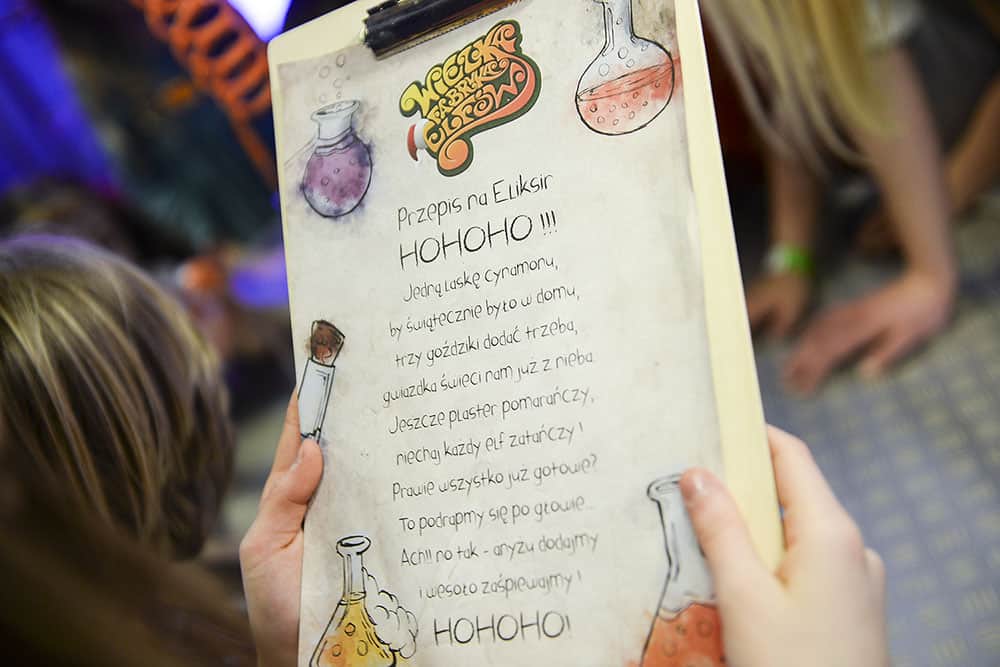 WIELKA
FABRYKA
ELFÓW
Przepis na Eliksir
HOHOHO !!!
Jedną laskę cynamonu,
by świątecznie było w domu,
trzy goździki dodać trzeba,
gwiazdka świeci nam już z nieba.
Jeszcze plaster pomarańczy,
niechaj każdy elf zatańczy!
Prawie wszystko już gotowe?
To podrapmy się po głowie...
Ach!! no tak - anyżu dodajmy
i wesoło zaśpiewajmy!
HOHOHO!